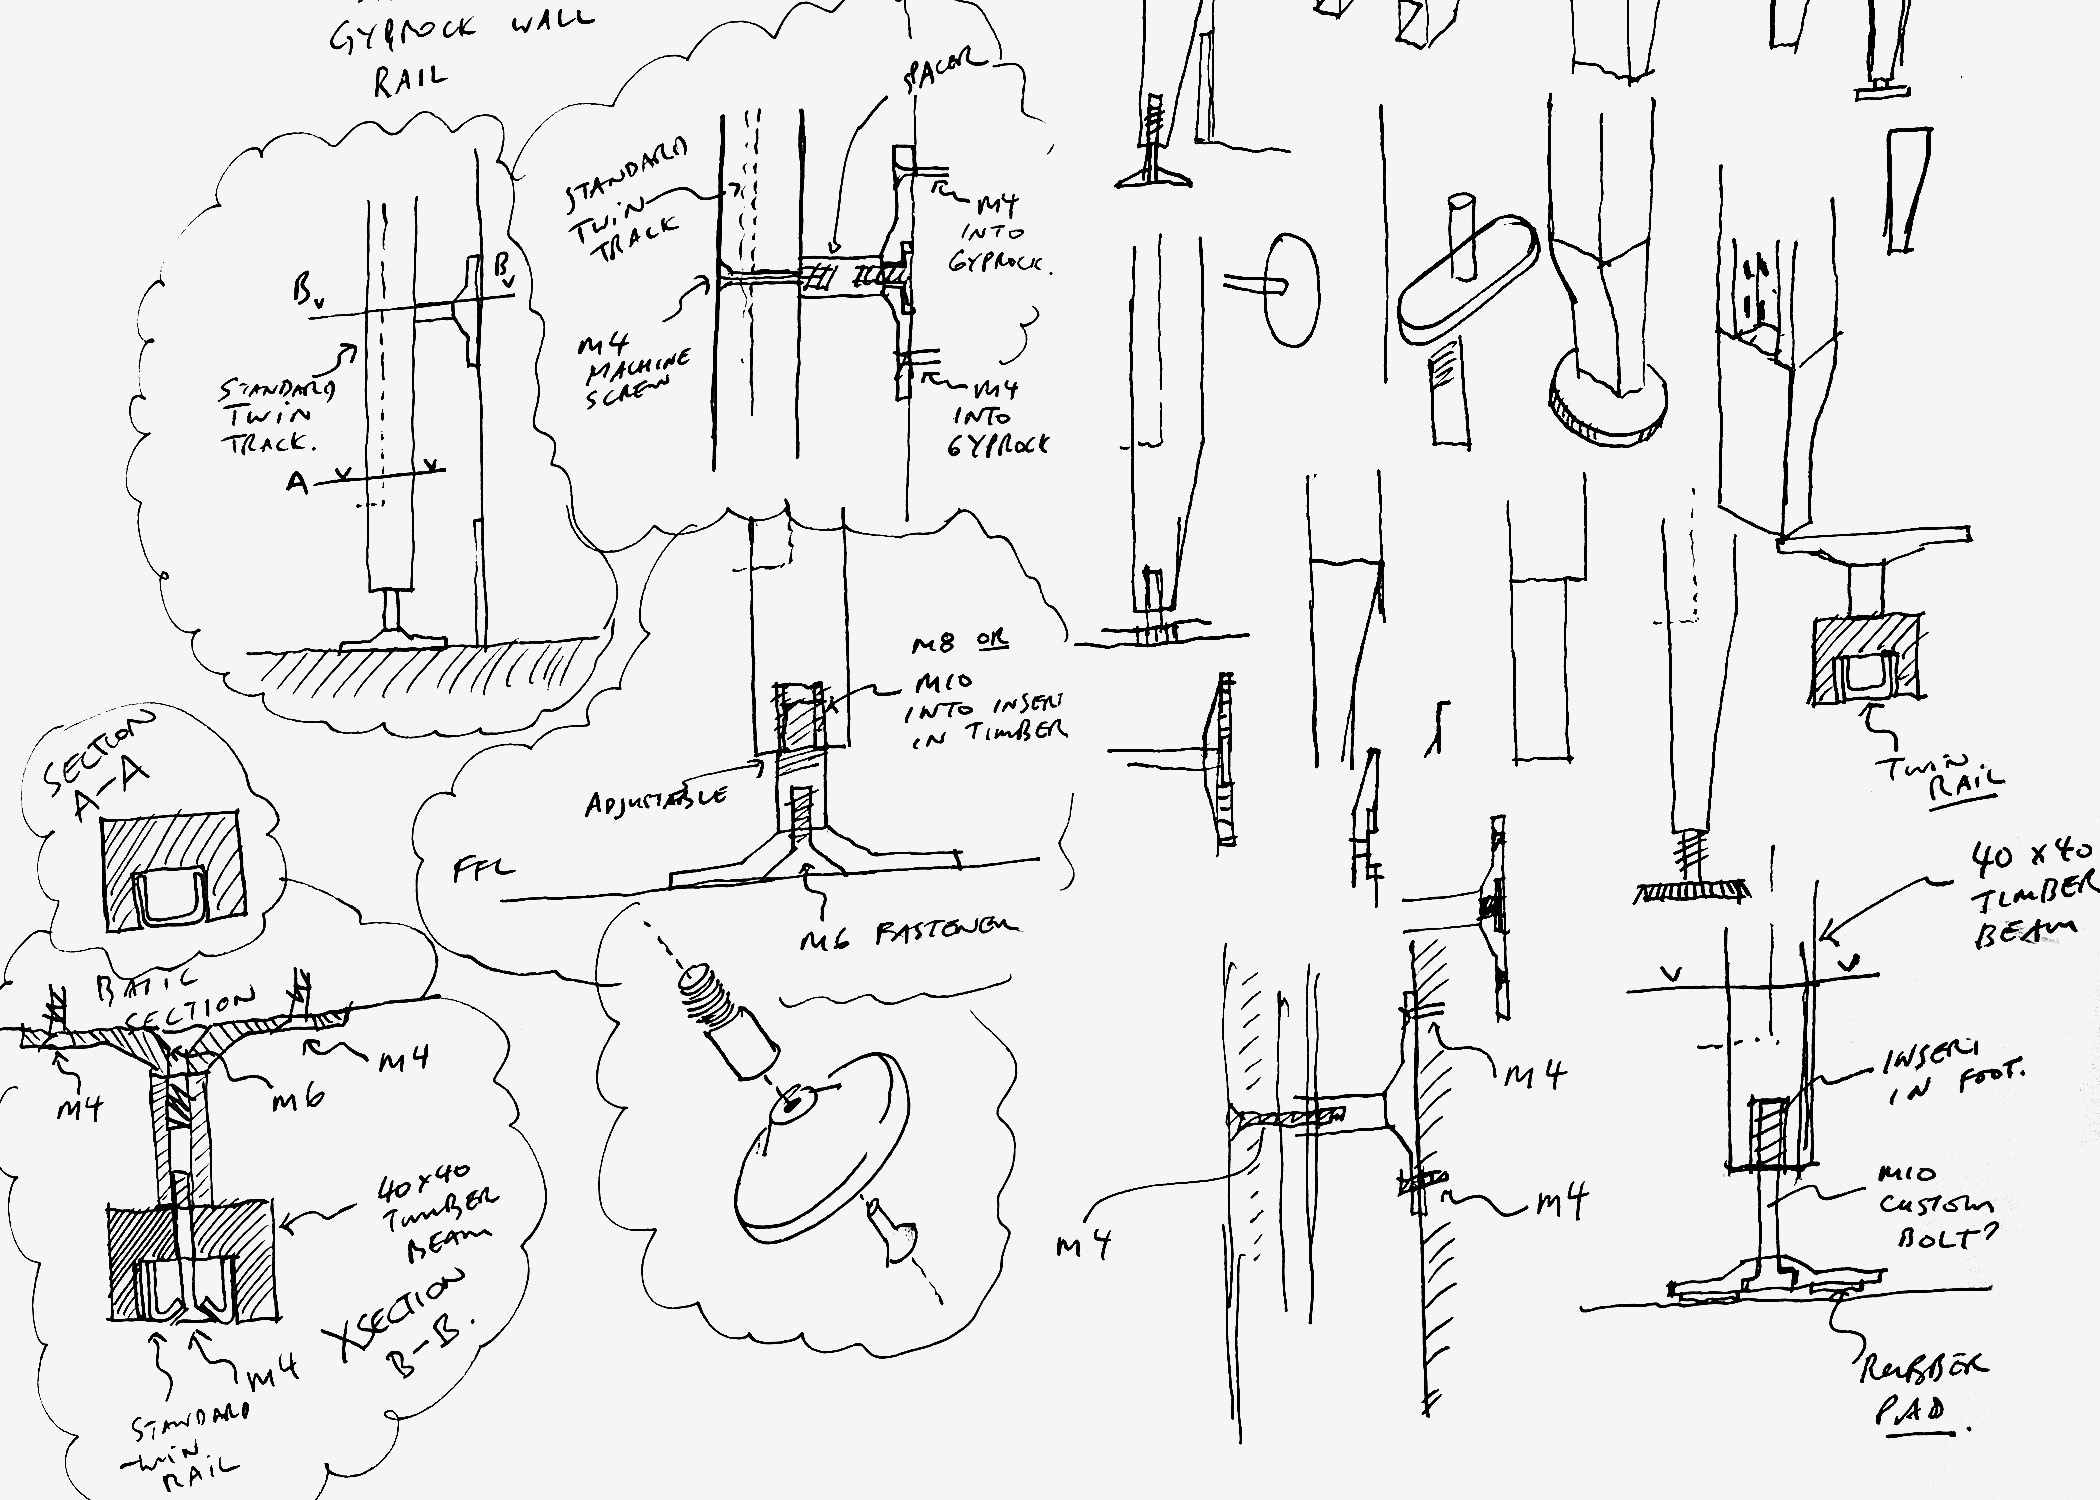 GYPROCK WALL
RAIL
SPACER
STANDARD
TWIN
TRACK
M4
INTO
GYPROCK.
B
B
M4
MACHINE
SCREW
M4
INTO
GYPROCK
STANDARD
TWIN
TRACK.
A
M8 OR
M10
INTO INSERT
IN TIMBER
ADJUSTABLE
FFL
M6 FASTENER
SECTION
A-A
SECTION
M4
M4
M6
40x40
TIMBER
BEAM
XSECTION
B-B.
M4
STANDARD
TWIN
RAIL
TWIN
RAIL
40 x 40
TIMBER
BEAM
INSERT
IN FOOT.
M10
CUSTOM
BOLT?
RUBBER
PAD.
M4
M4
M4